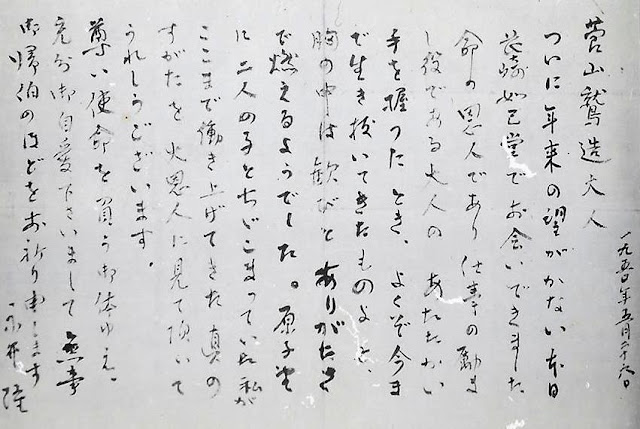 一九五〇年五月二十六日
菅山鷲造大人
ついに年来の望がかない本日
長崎如己堂でお会いできました
命の恩人であり仕事の励ま
し役である大人のあたたかい
手を握ったとき、よくぞ今ま
で生き抜いてきたものよと、
胸の中は歓びとありがたさ
で燃えるようでした。原子野
に二人の子とちぢこまっていた私が
ここまで働き上げてきた真の
すがたを大恩人に見て頂いて
うれしうございます。
尊い使命を負う御体ゆえ、
充分御自愛下さいまして無事
御帰伯のほどをお祈り申します
永井隆